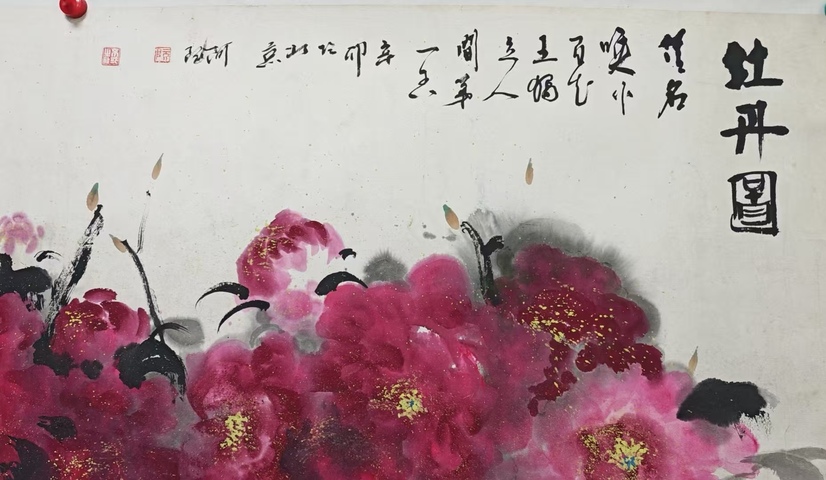 牡丹圖
佳名
喚作
百花
王獨
立人
間第
一香
辛
卯
於
北
京